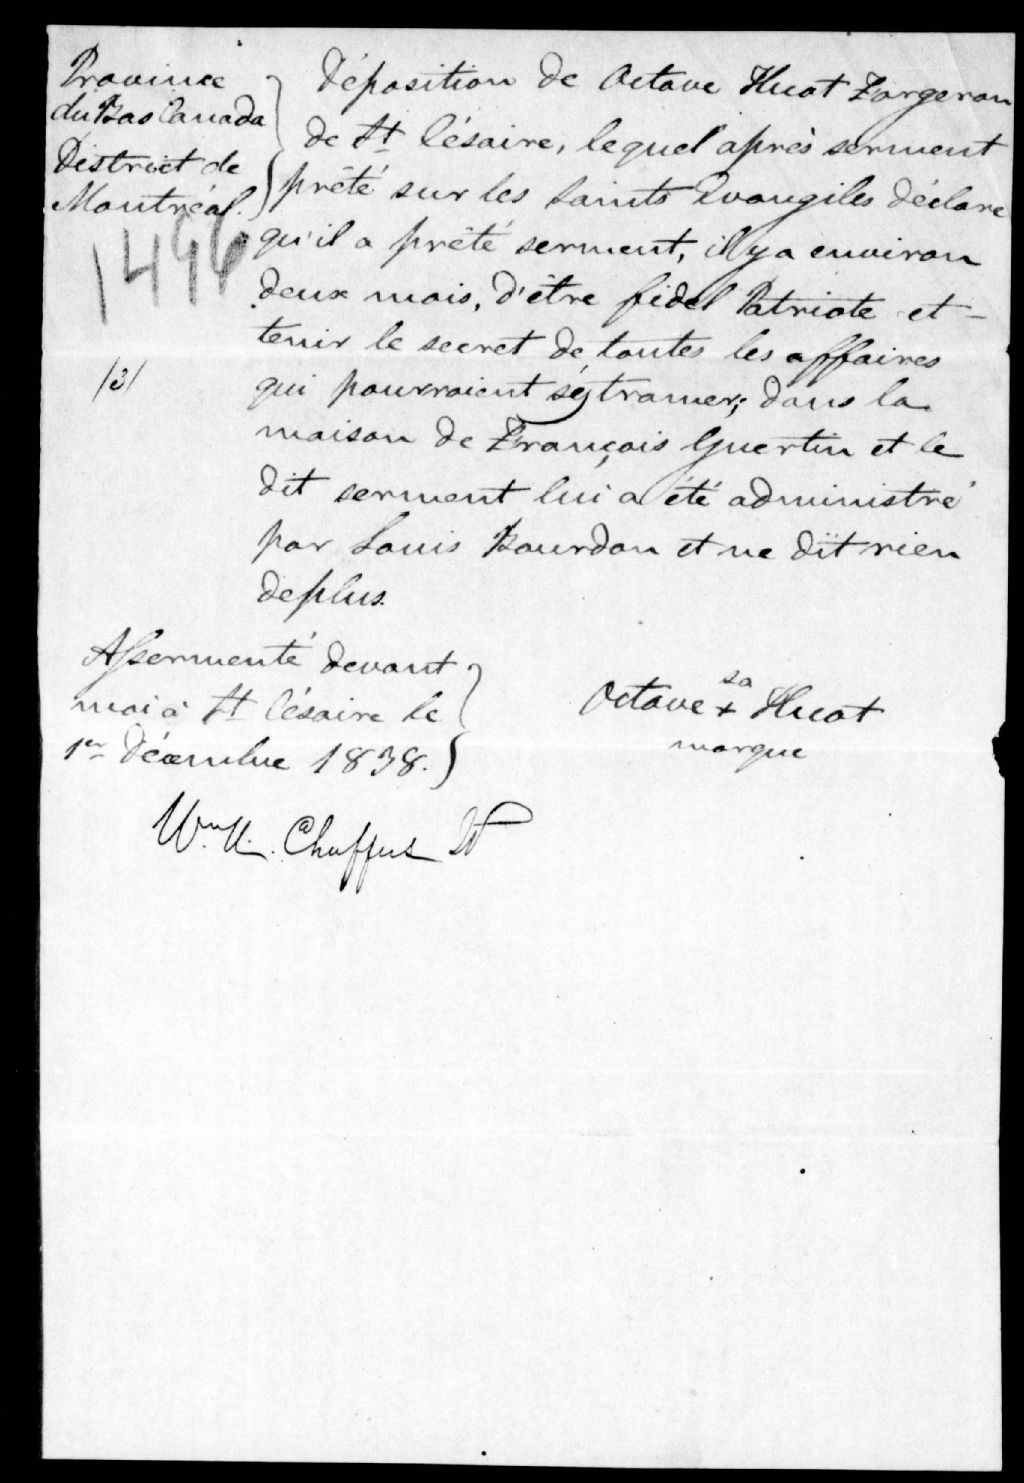 Province
du Bas Canada
District de
Montréal.
1496
/3/
Déposition de Octave Huot Forgeron
de St Césaire, lequel après serment
prêté sur les Saints Evangiles déclare
qu'il a prêté serment, il y a environ
deux mois, d'être fidel Patriote et
tenir le secret de toutes les affaires
qui pourraient s'y tramer; dans la
maison de François Guertin et le
dit serment lui a été administré
par Louis Bourdon et ne dit rien
de plus.
Assermenté devant
moi à St Césaire le
1er Décembre 1838.
sa
Octave + Huot
marque
Wm U. Chaffers